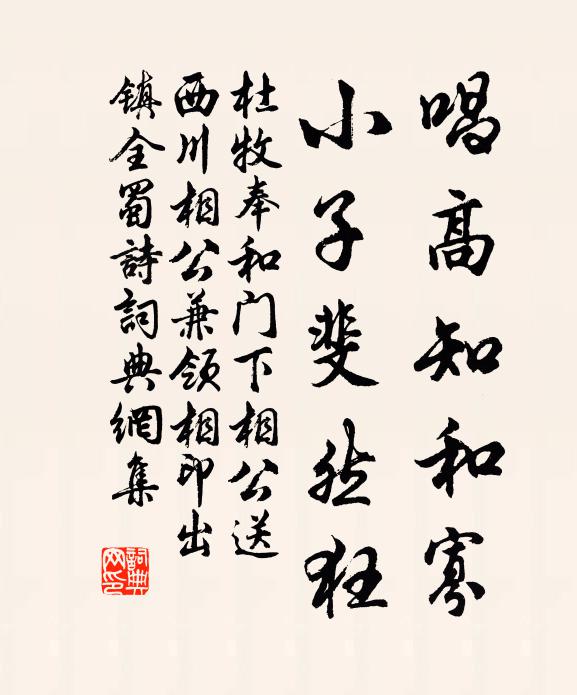 唱高知和寡
小子斐然狂
杜牧奉和门下相公送
西川相公兼领相印出
镇全蜀詩詞典網集
詞典网印